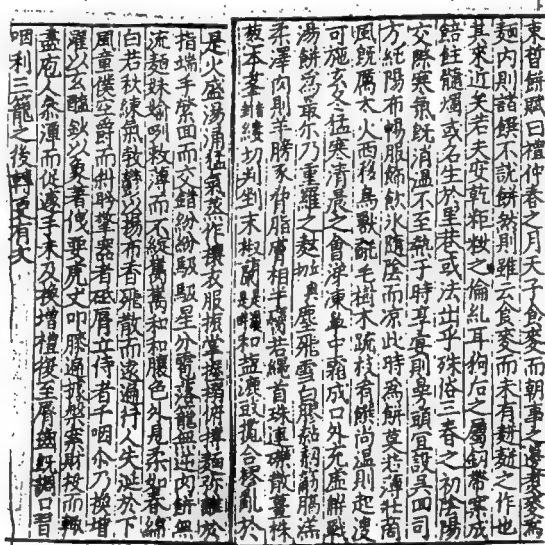 束晳餅賦曰禮仲春之月天子食麥而朝事之籩煑麥爲
麵內則諸饌不說餅然則雖云食麥而未有餅餅之作也
其來近矣若夫安乾粔籹之倫豘耳狗后之屬劒帶案成
餢飳髓燭或名生於里巷或法出乎殊俗三春之初陰陽
交際寒氣既消溫不至熱于時享宴則曼頭宜設吳回司
方純陽布暢服絺飲水隨陰而凉此時爲餅莫若薄壯商
風既厲大火西移鳥獸氄毛樹木疏枝肴饌尚溫則起溲
可施玄冬猛寒清晨之會涕凍鼻中霜成口外充虛解戰
湯餅爲最尒乃重羅之麩塵飛雪白膠黏韌
柔澤肉則羊膀豕脅脂膚相半臠若繩首珠連礫散薑株
葱本切判剉末椒蘭是和盬漉豉攬合樛亂於
是火盛湯涌猛氣蒸作攘衣服振掌握搦俯搏麵弥離於
指端手縈回而交錯紛紛馺馺星分雹落籠無迸肉餅無
流麵妹媮咧敕薄而不綻雋雋和和䑋色外見柔如春綿
白若秋練氣勃欝以揚布香飛散而遠遍行人失涎於下
風童僕空嚼而斜眄擎器者䑛脣立侍者干咽尒乃換增
濯以玄醢鈔以象著伸要虎丈叩膝遍據槃案財投而輙
盡庖人參潭而促遽手未及換增禮復至脣齒既調口習
咽利三籠之後轉更有次